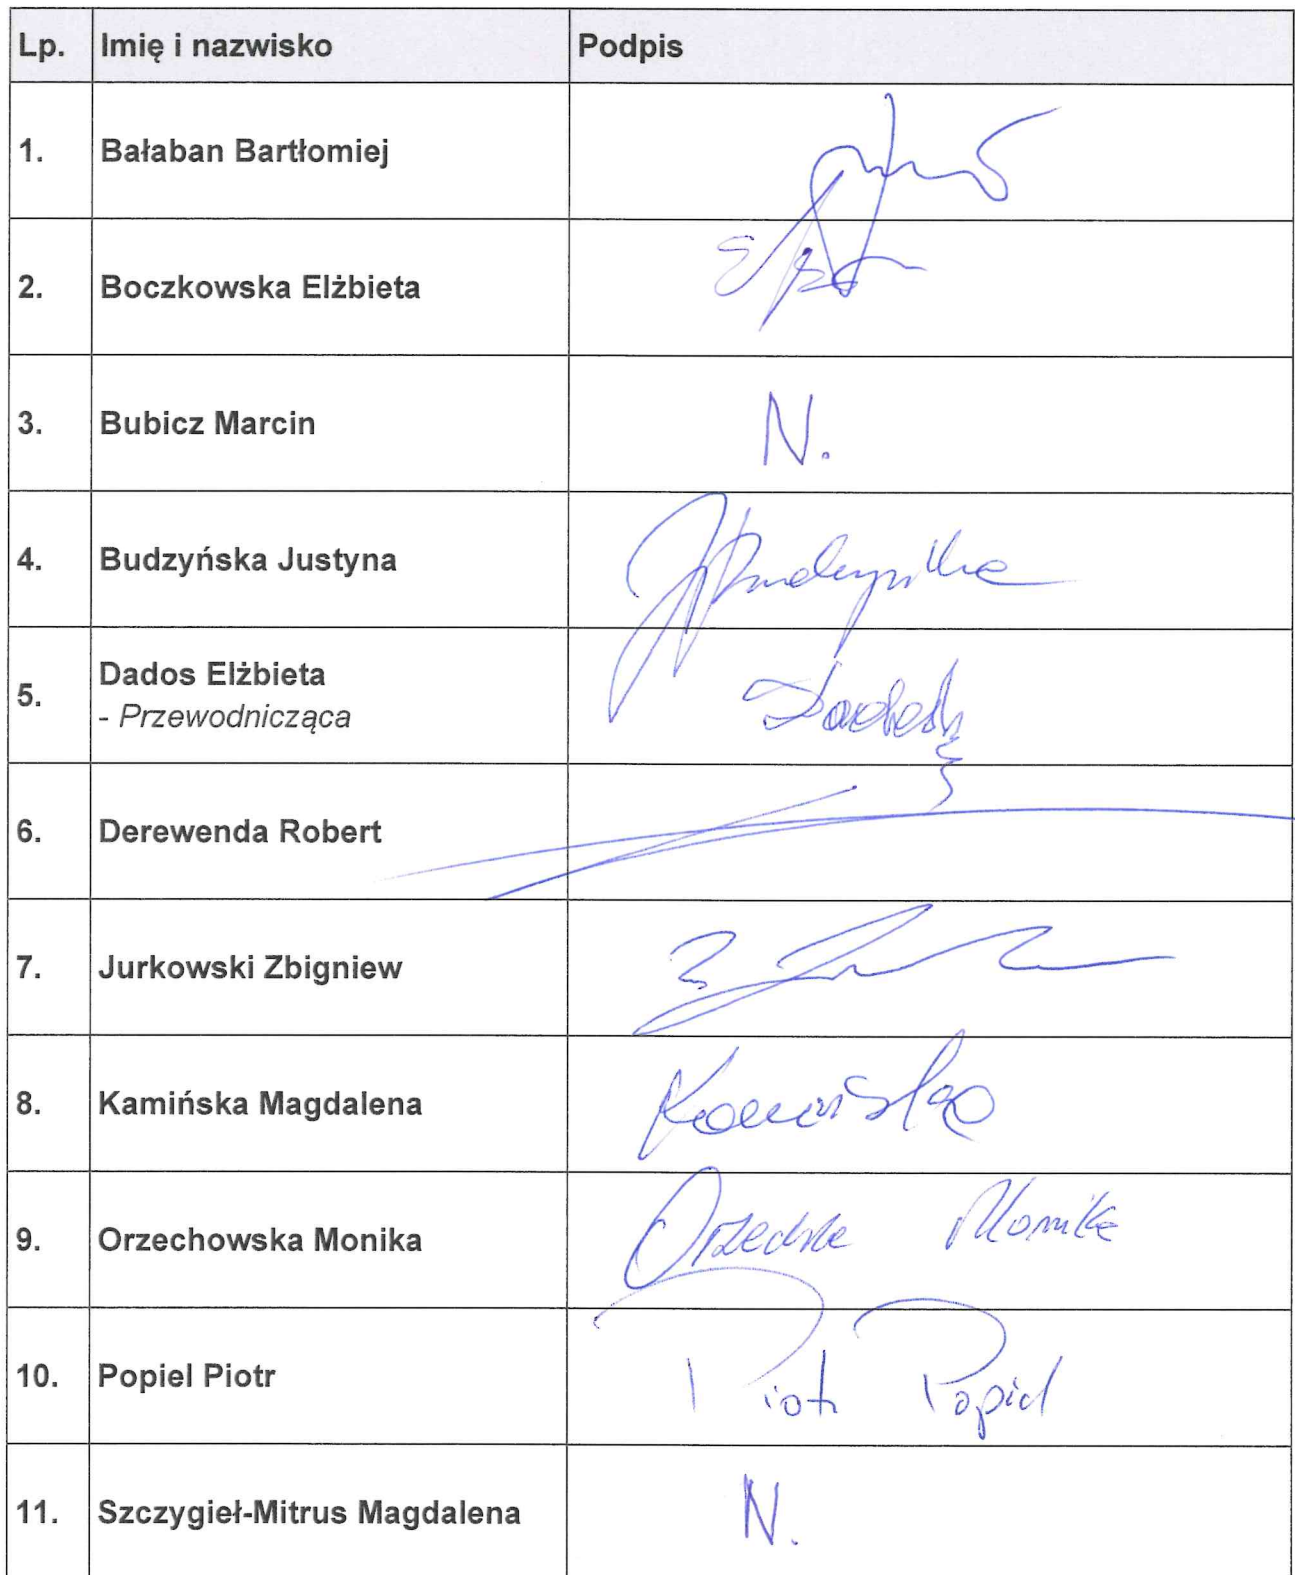 Lp. Imię i nazwisko Podpis
1. Bałaban Bartłomiej
2. Boczkowska Elżbieta
3. Bubicz Marcin N.
4. Budzyńska Justyna
5. Dados Elżbieta
- Przewodnicząca
6. Derewenda Robert
7. Jurkowski Zbigniew
8. Kamińska Magdalena Kamińska
9. Orzechowska Monika Monika
10. Popiel Piotr Piotr Popiel
11. Szczygieł-Mitrus Magdalena N.